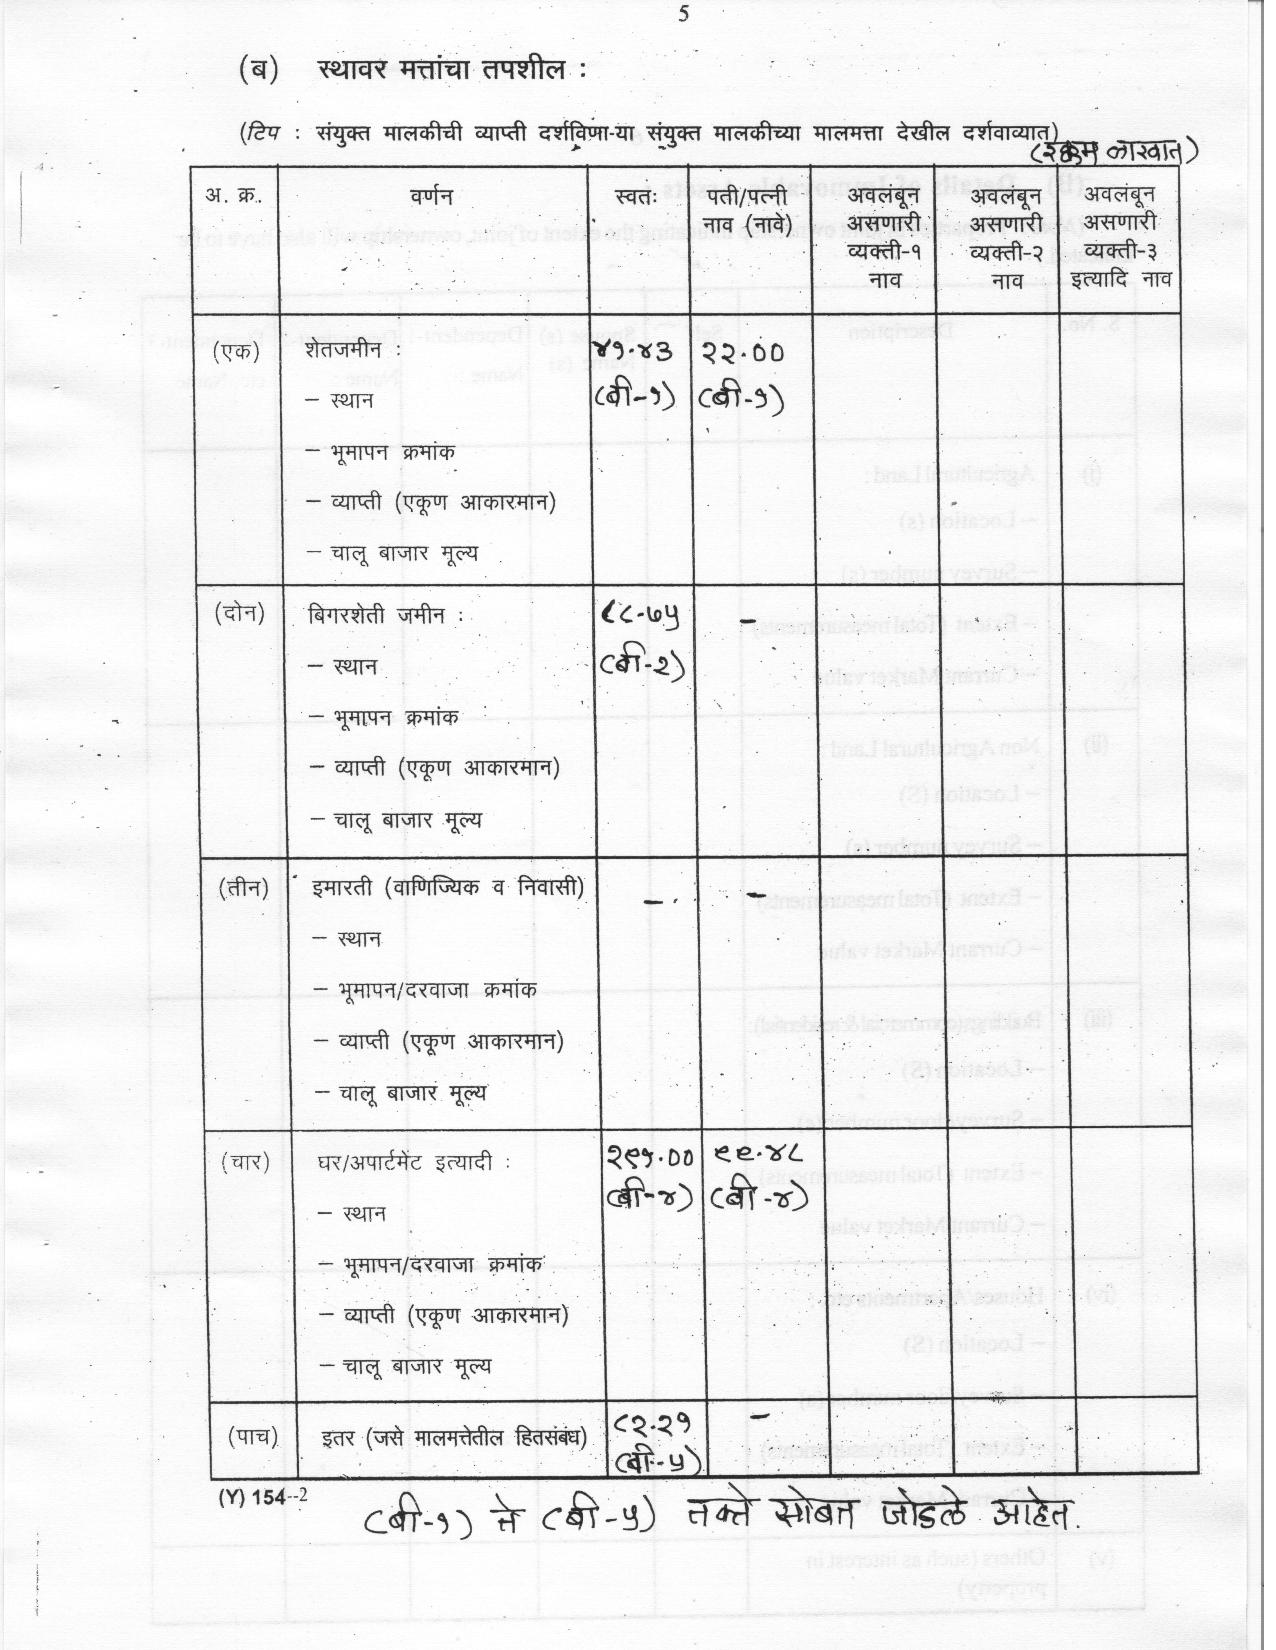 5
(ब) स्थावर मत्तांचा तपशील :
(टिप : संयुक्त मालकीची व्याप्ती दर्शविणा-या संयुक्त मालकीच्या मालमत्ता देखील दर्शवाव्यात)
(रक्कम लाखात)
अ. क्र. वर्णन स्वतः पती/पत्नी नाव (नावे) अवलंबून असणारी व्यक्ती-१ नाव अवलंबून असणारी व्यक्ती-२ नाव अवलंबून असणारी व्यक्ती-३ इत्यादि नाव
(एक) शेतजमीन : ४१.४३ २२.००
– स्थान (बी-१) (बी-१)
– भूमापन क्रमांक
– व्याप्ती (एकूण आकारमान)
– चालू बाजार मूल्य
(दोन) बिगरशेती जमीन : ८८.७५ –
– स्थान (बी-२)
– भूमापन क्रमांक
– व्याप्ती (एकूण आकारमान)
– चालू बाजार मूल्य
(तीन) इमारती (वाणिज्यिक व निवासी) – –
– स्थान
– भूमापन/दरवाजा क्रमांक
– व्याप्ती (एकूण आकारमान)
– चालू बाजार मूल्य
(चार) घर/अपार्टमेंट इत्यादी : २९५.०० ९९.४८
– स्थान (बी-४) (बी-४)
– भूमापन/दरवाजा क्रमांक
– व्याप्ती (एकूण आकारमान)
– चालू बाजार मूल्य
(पाच) इतर (जसे मालमत्तेतील हितसंबंध) ८२.२१ –
(बी-५)
(Y) 154--2
(बी-१) ते (बी-५) तक्ते सोबत जोडले आहेत.